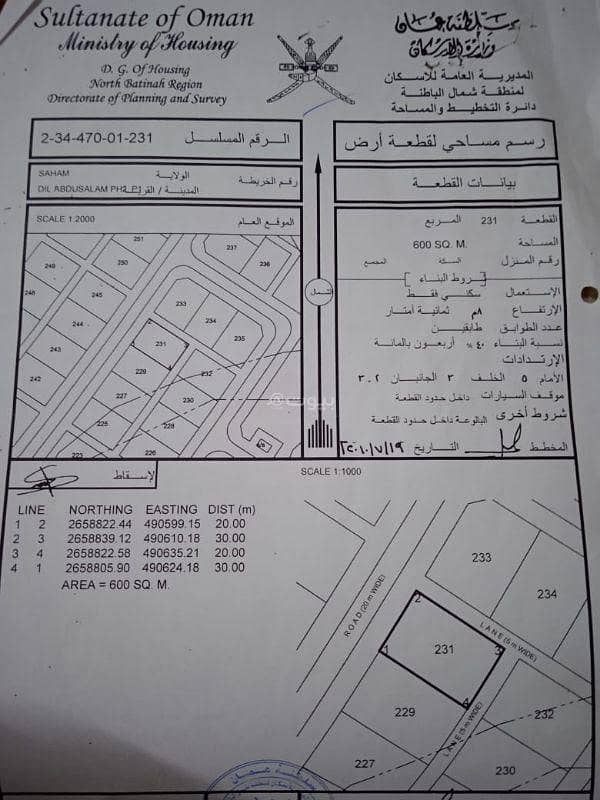 Sultanate of Oman
Ministry of Housing
D. G. Of Housing
North Batinah Region
Directorate of Planning and Survey
سلطنة عمان
وزارة الإسكان
المديرية العامة للاسكان
لمنطقة شمال الباطنة
دائرة التخطيط والمساحة
2-34-470-01-231 الرقم المسلسل
رسم مساحي لقطعة أرض
SAHAM الولاية
DIL ABDUSALAM المدينة / القرية
رقم الخريطة
بيانات القطعة
SCALE 1:2000 الموقع العام
251
237
236
249
250
248
246
245
244
243
242
233
234
235
231
1
2
3
4
229
232
227
230
225
228
226
223
الشمال
القطعة 231 المربع
المساحة 600 SQ. M.
رقم المنزل السكة المجمع
شروط البناء
الإستعمال سكني فقط
الإرتفاع ٨م ثمانية امتار
عدد الطوابق طابقين
نسبة البناء ٤٠٪ أربعون بالمائة
الإرتدادات
الأمام ٥ الخلف ٣ الجانبان ٣،٢
موقف السيارات داخل حدود القطعة
شروط أخرى البالوعة داخل حدود القطعة
المخطط التاريخ
لإسقاط
SCALE 1:1000
LINE NORTHING EASTING DIST (m)
1 2 2658822.44 490599.15 20.00
2 3 2658839.12 490610.18 30.00
3 4 2658822.58 490635.21 20.00
4 1 2658805.90 490624.18 30.00
AREA = 600 SQ. M.
ROAD (20 m WIDE)
233
234
LANE (5 m WIDE)
2
1
231
3
4
229
LANE (5 m WIDE)
232
227
230
بيوت